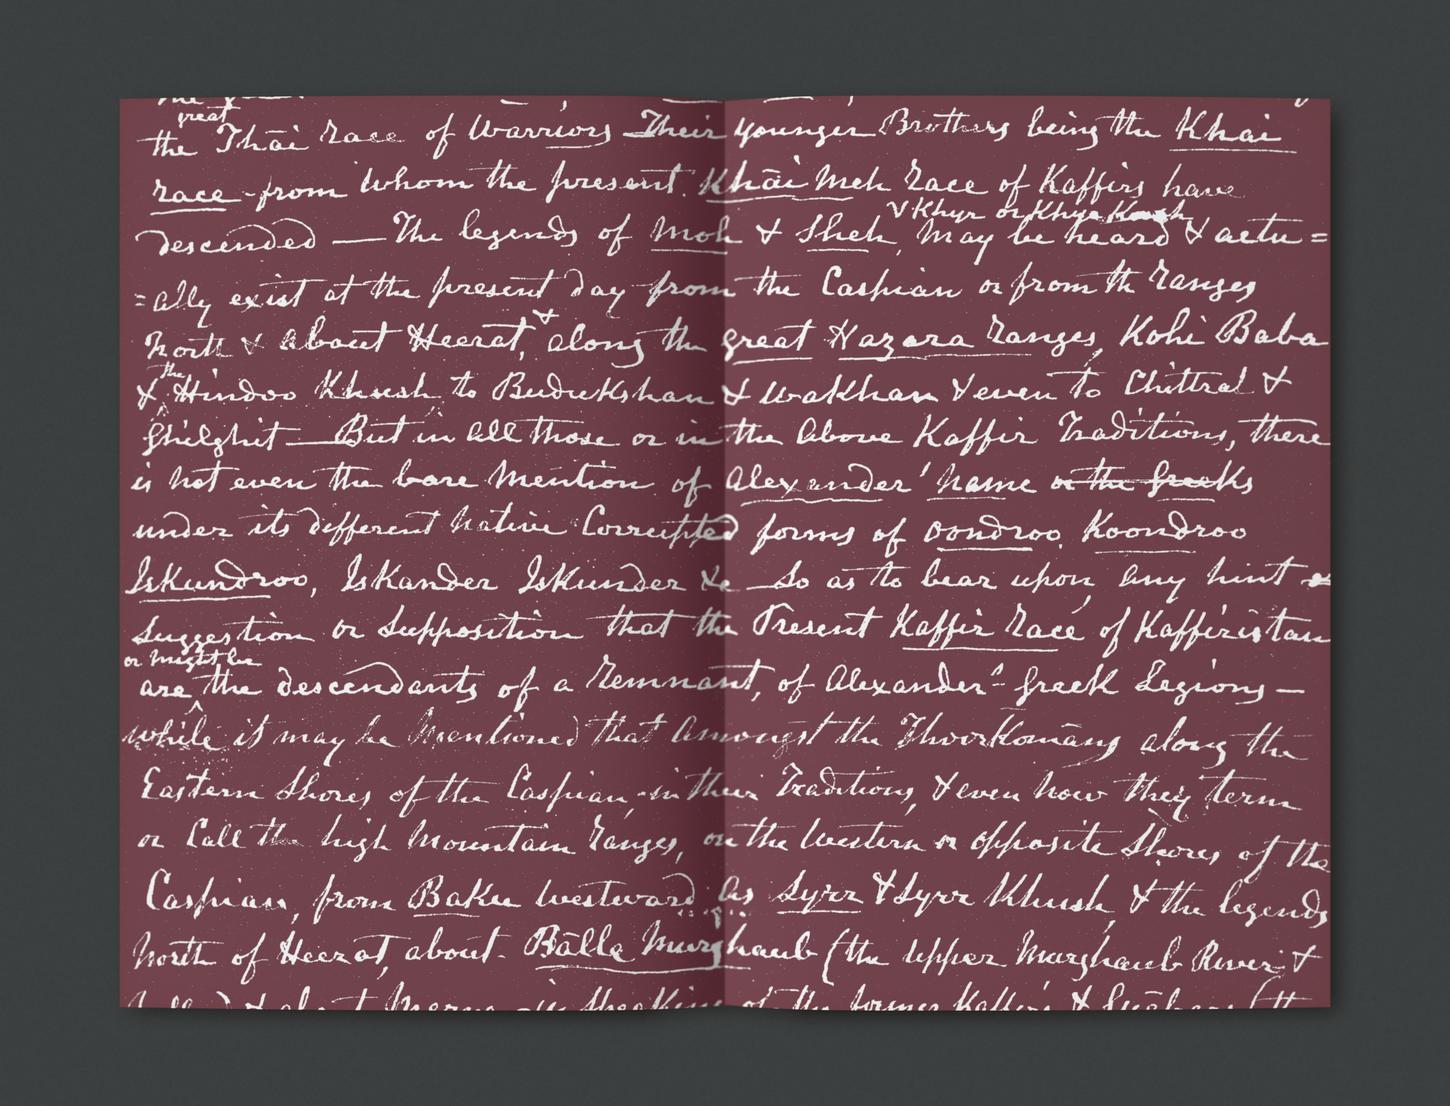 great
the Thāi race of Warriors — Their younger Brothers being the Khai
race - from whom the present Khāi Meh race of Kaffirs have
& Khyr or Khye Kush
descended — The legends of Moh & Sheh, may be heard & actu =
= ally exist at the present day from the Caspian or from th ranges
North & about Heerat, & along the great Hazara ranges, Kohi Baba
the
& Hindoo Khush to Budukshan & Wakhan & even to Chittral &
Ghilghit — But in all those or in the above Kaffir Traditions, there
is not even the bare mention of Alexander' name or the Greeks
under its different native Corrupted forms of Oondroo, Koondroo
Iskundroo, IsKander IsKunder &c — So as to bear upon, any hint or
Suggestion or Supposition that the Present Kaffir race of Kaffiristan
or might be
are the descendants of a remnant, of Alexanders Greek Legions —
while it may be mentioned that Amongst the Thoorkomāns along the
Eastern Shores of the Caspian, in their Traditions, & even now they term
or Call the high Mountain ranges, on the Western or opposite Shores of the
Caspian, from Baku westward as Syrr & Syrr Khush, & the legends
North of Heerat, about Bālla Murghaub (the upper Murghaub River &